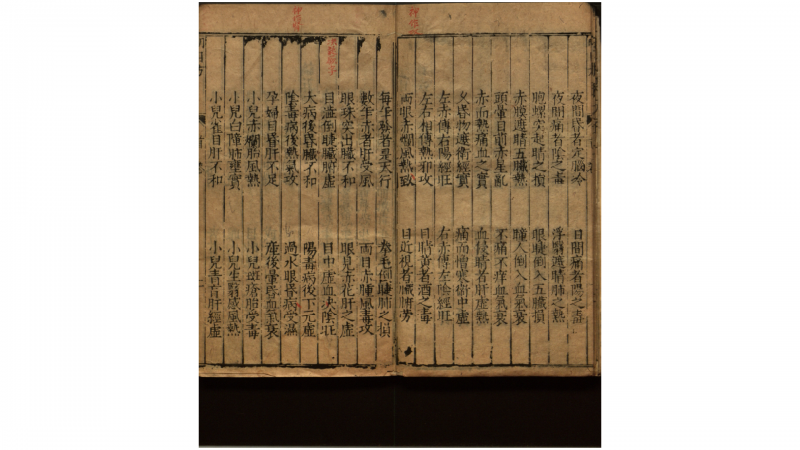 夜間昏者元海冷　日間痛者陽之毒
夜間痛者陰之毒　浮翳遮睛肺之熱
胞螺突起睛之損　眼睫倒入五臟損
赤膜遮睛五臟熱　瞳人倒入血氣衰
頭暈目前赤星亂　不痛不痒血氣衰
赤而熱痛血之實　血侵睛者肝虛熱
痛而憎寒衛中虛
左赤傳右陽經旺　右赤傳左陰經旺
左右相傳熱和攻　目睛黃者酒之毒
兩眼赤爛風熱致　目近視者臟腑勞
每年發者是天行　拳毛倒睫肺之損
數年赤者肝受風　兩目赤腫風毒攻
眼珠突出臟不和　眼見赤花肝之虛
目澁倒睫臟腑虛　目中虛血決陰旺
大病後昏臟不和　陽毒病後下元虛
陰毒病後熱氣攻　過水眼昏病受濕
孕婦目昏肝不足　產後暈昏血氣衰
小兒赤爛胎風熱　小兒斑瘡胎受毒
小兒白障肺壅實　小兒生翳感風熱
小兒雀目肝不和　小兒青盲肝經虛